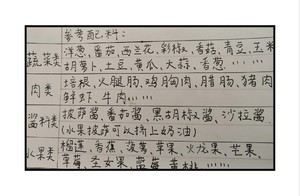 参考配料:
蔬菜类
洋葱、番茄、西兰花、彩椒、香菇、青豆、玉米
胡萝卜、土豆、黄瓜、大蒜、香葱……
肉类
培根、火腿肠、鸡胸肉、腊肠、猪肉
鲜虾、牛肉……
酱料类
披萨酱、番茄酱、黑胡椒酱、沙拉酱
(水果披萨可以挤上奶油)
水果类
榴莲、香蕉、菠萝、苹果、火龙果、芒果、
草莓、圣女果、蓝莓、黄桃……